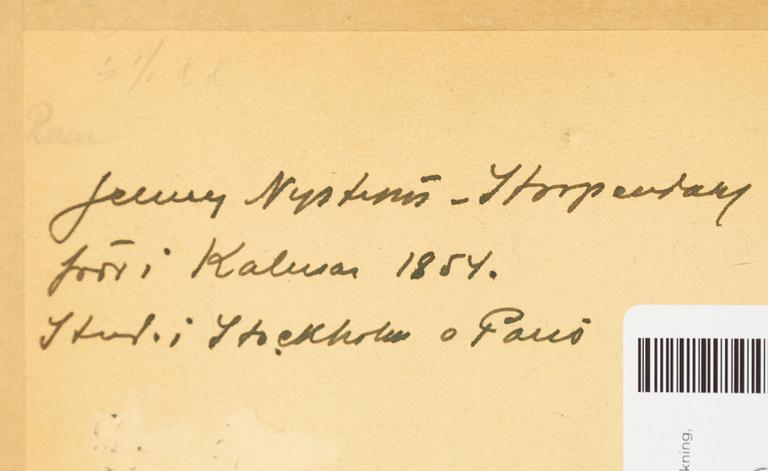 Jenny Nyström - Stoopendahl
född i Kalmar 1854.
Stud. i Stockholm o Paris
kning,